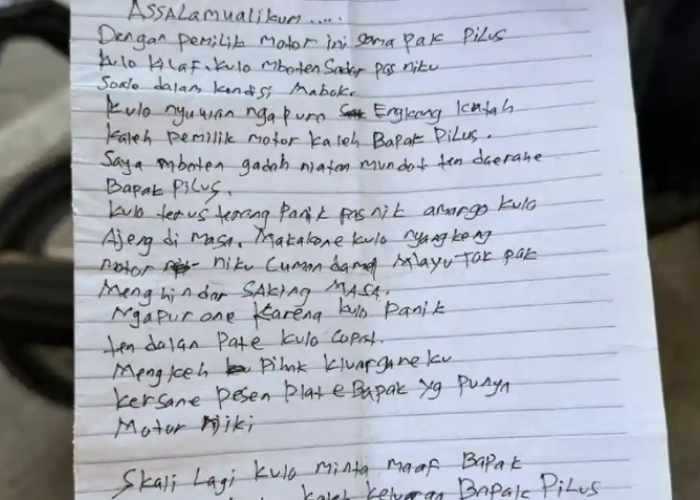 ASSALAMUALIKUM .....
Dengan pemilik motor ini sama pak Pilus
Kulo Hilaf. Kulo mboten Sadar pas niku
Soalo dalam Kondisi Mabok.
Kulo nyuwan ngapuro Engkang Katah
Kaleh pemilik motor kaleh Bapak Pilus.
Saya mboten gadah niatan mundot ten daerahe
Bapak Pilus.
Kulo terus terang Panik pas nik amargo kulo
Ajeng di masa. Makalone kulo nyangkeng
motor niku Cuman damel Mlayu Tok pak
Menghindar SAKING MASA.
Ngapurone Karena kulo Panik
ten dalan Pate kulo Copot.
Mengkeh Pihak Kluargane ku
Kersane pesen Plat e Bapak yg Punya
Motor Niki
Skali Lagi kulo minta maaf Bapak
kaleh Keluaran Bapak Pilus